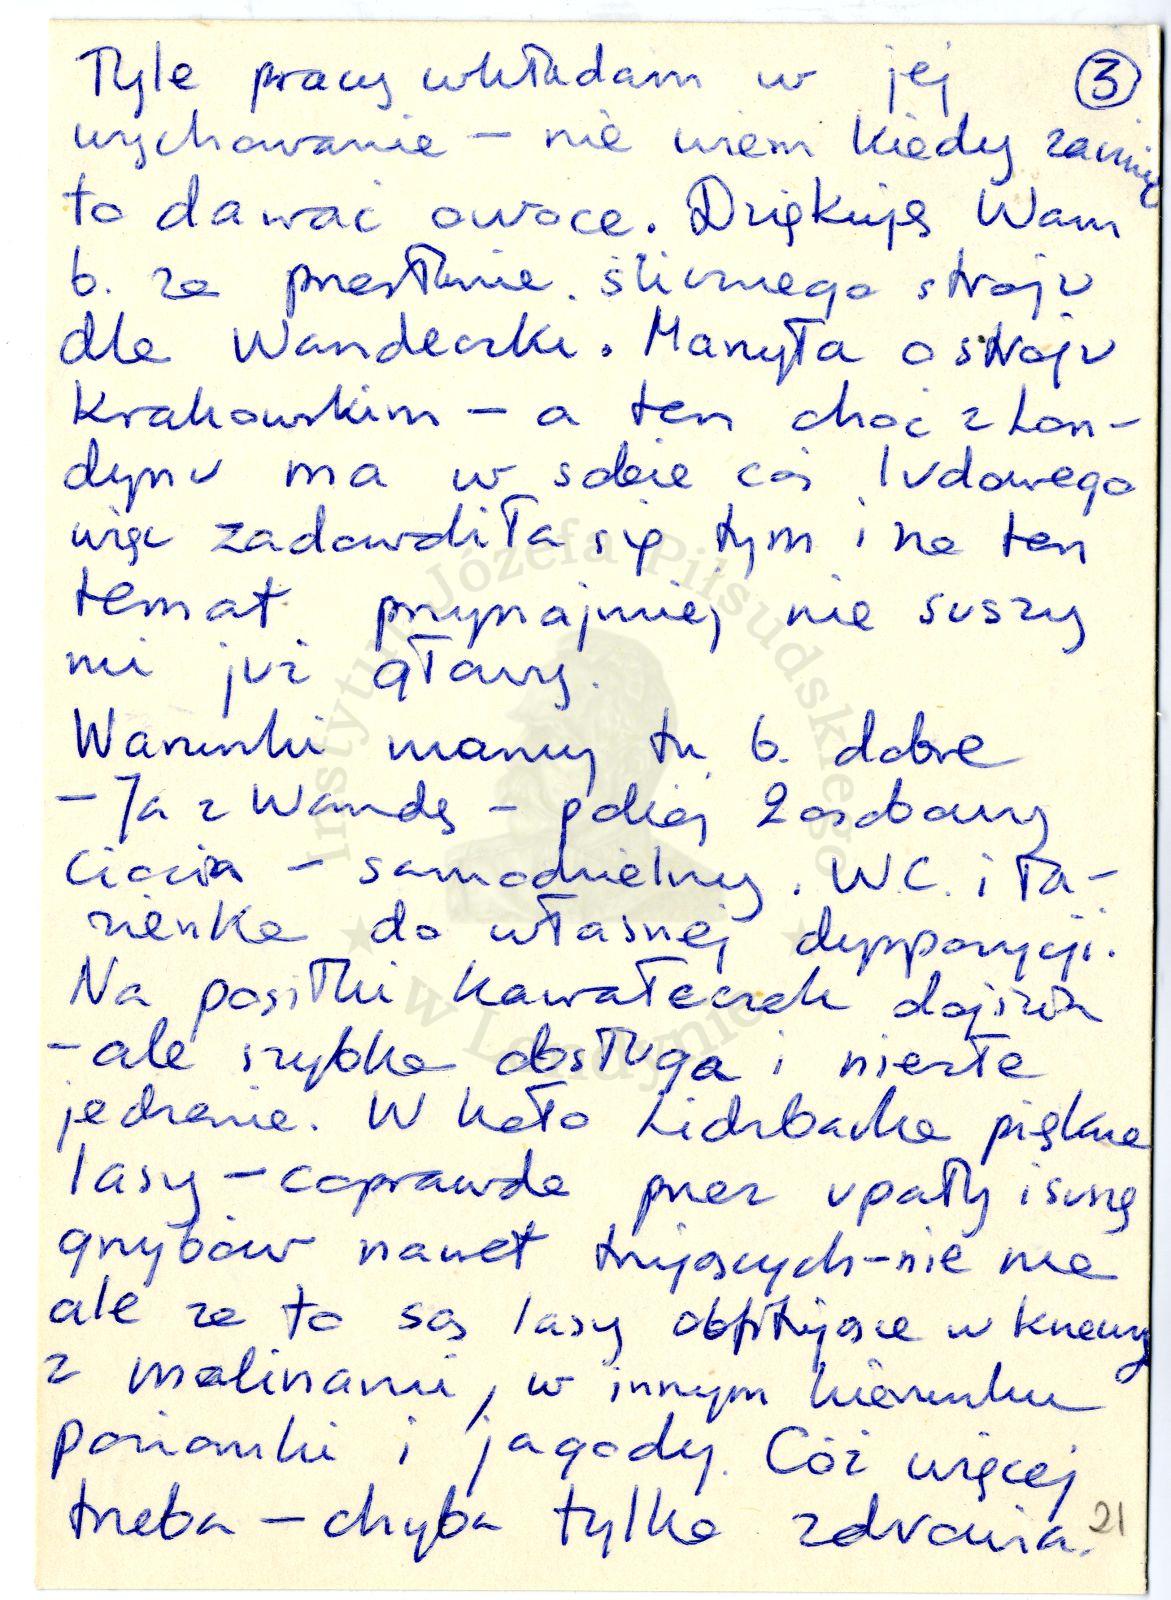 Tyle pracy wkładam w jej ③
wychowanie – nie wiem kiedy zacznie
to dawać owoce. Dziękuję Wam
b. za przesłanie ślicznego stroju
dla Wandeczki. Marzyła o stroju
Krakowskim – a ten choć z Lon-
dynu ma w sobie coś ludowego
więc zadowoliła się tym i na ten
temat przynajmniej nie suszy
mi już głowy.
Warunki mamy tu b. dobre
– Ja z Wandą – pokój 2 osobowy
Ciocia – samodzielny. W.C. i ła-
zienka do własnej dyspozycji.
Na posiłki kawałeczek dojścia
– ale szybka obsługa i niezłe
jedzenie. W koło Lidzbarka piękne
lasy – coprawda przez upały i suszę
grzybów nawet trujących – nie ma
ale za to są lasy obfitujące w krzewy
z malinami, w innym kierunku
poziomki i jagody. Cóż więcej
trzeba – chyba tylko zdrowia.
21
Instytut Józefa Piłsudskiego
★ w Londynie ★